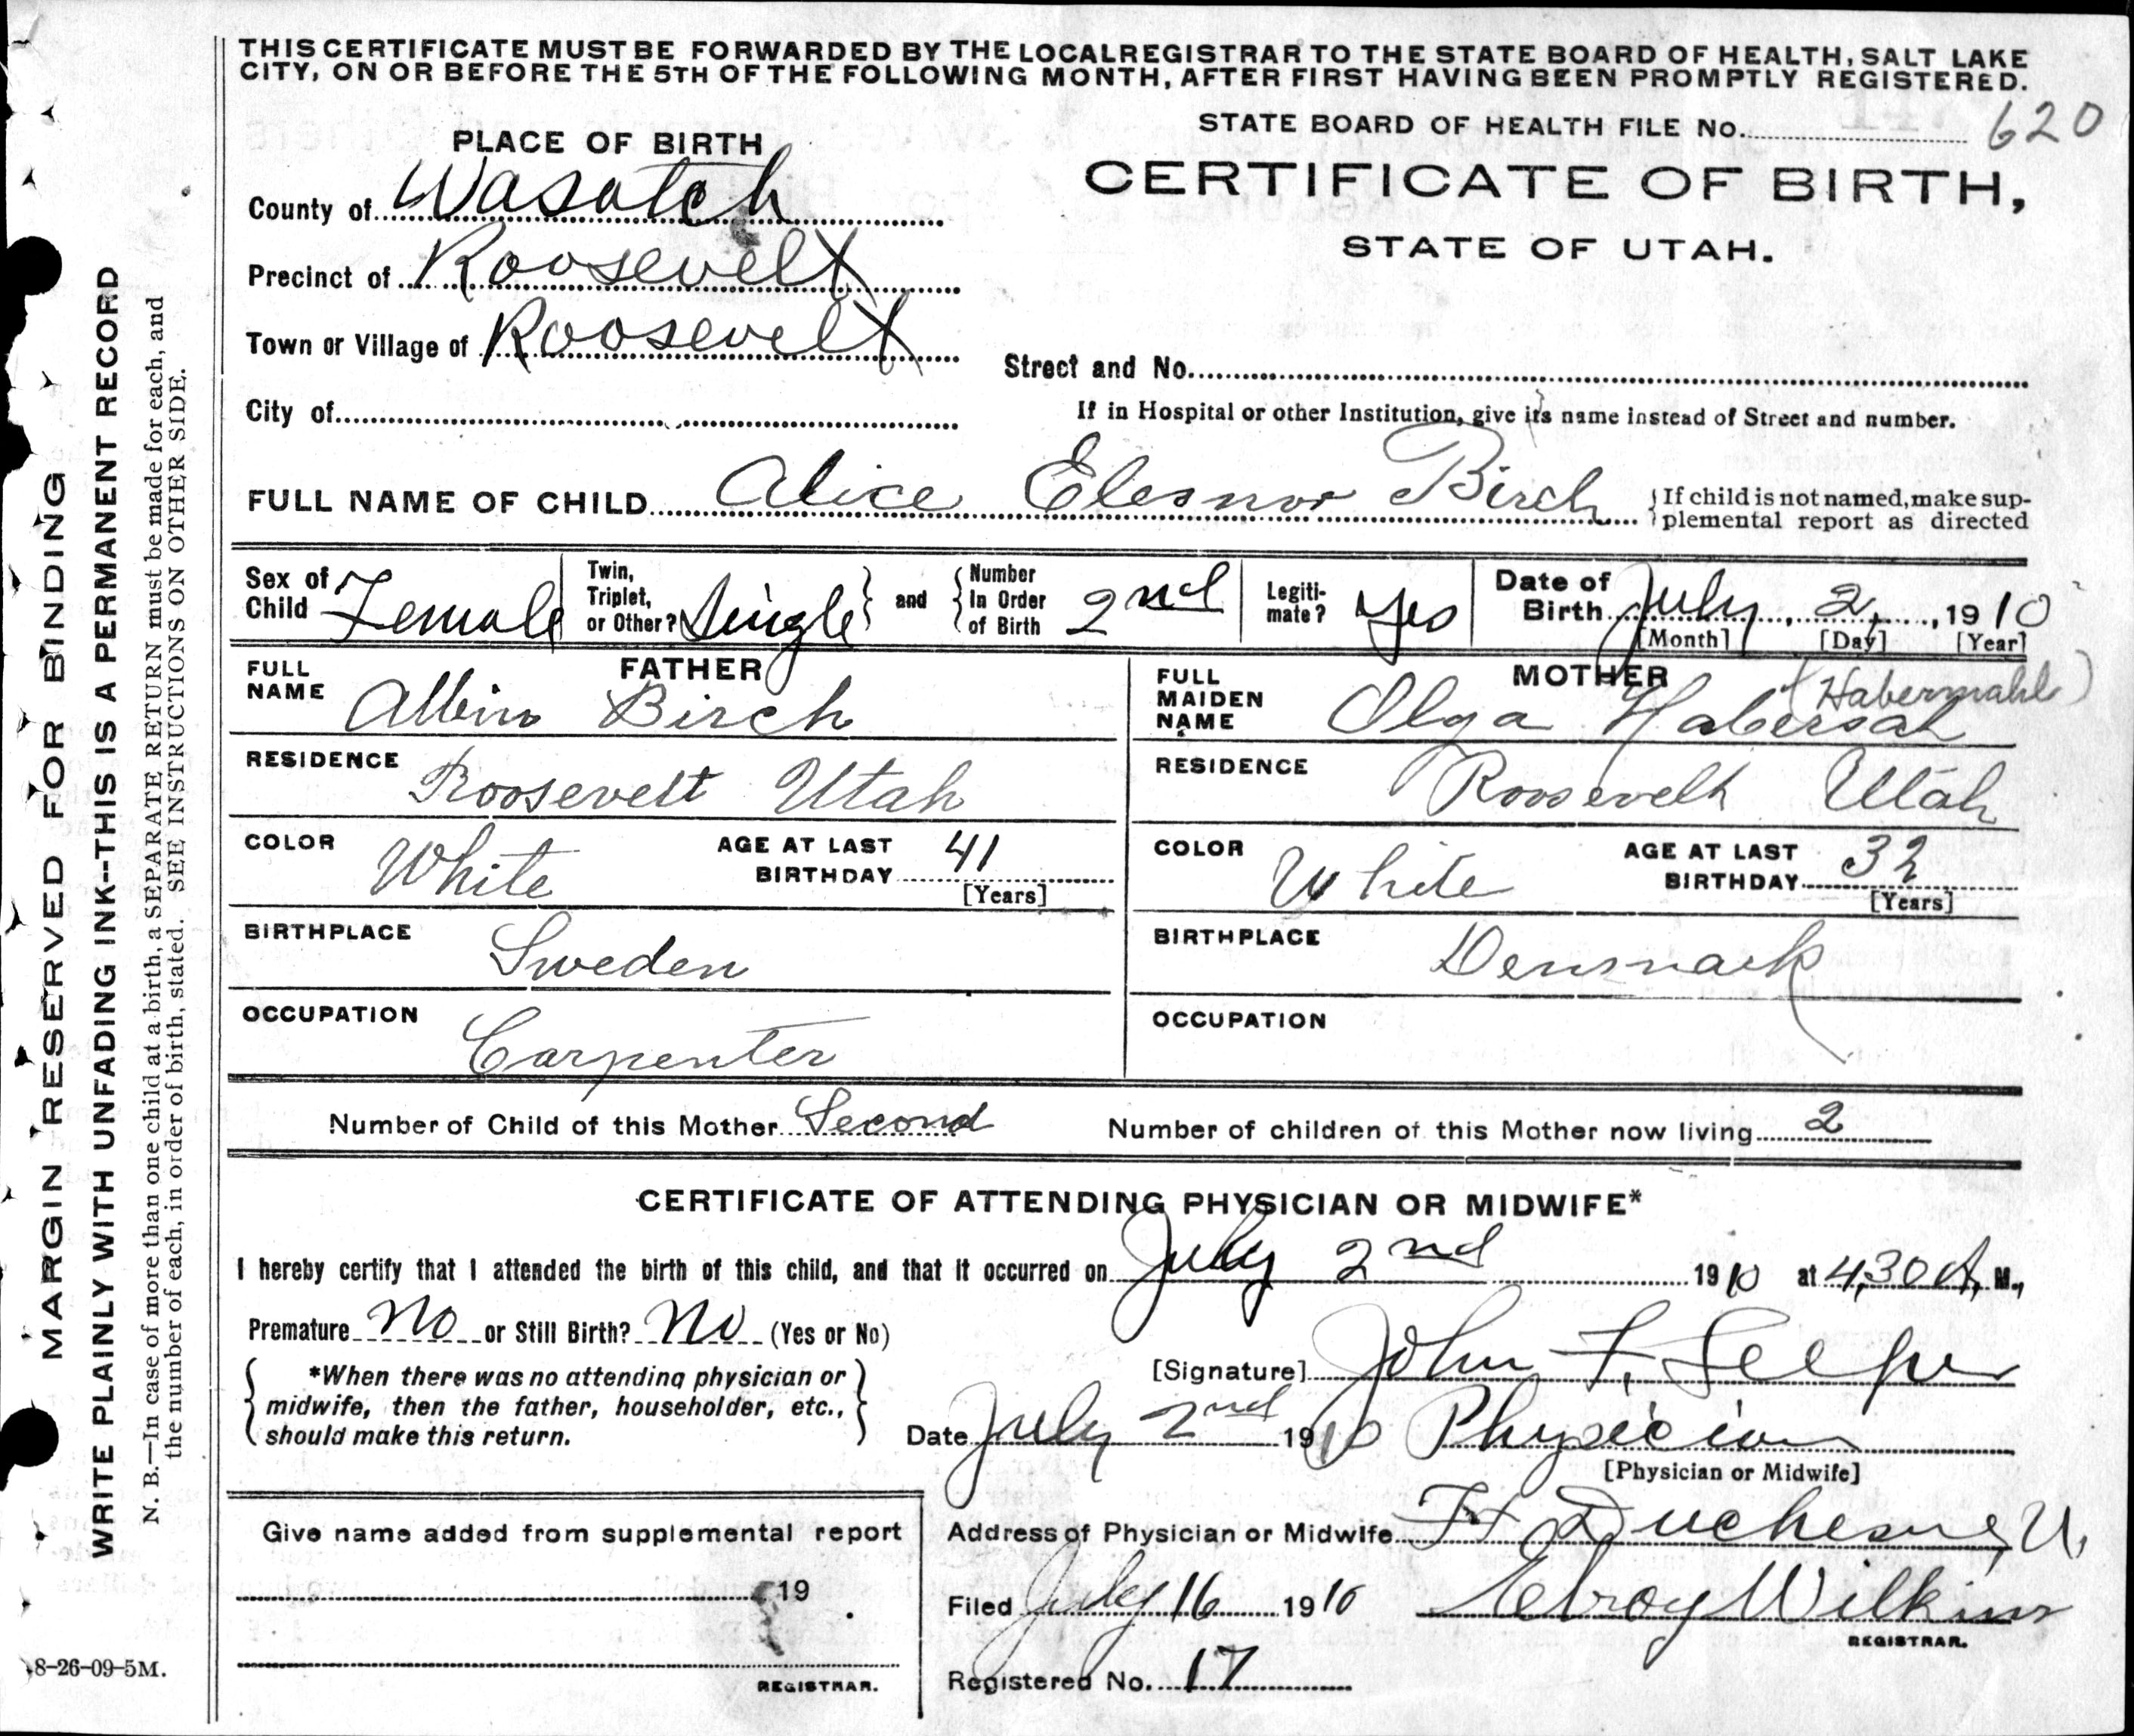 THIS CERTIFICATE MUST BE FORWARDED BY THE LOCAL REGISTRAR TO THE STATE BOARD OF HEALTH, SALT LAKE
CITY, ON OR BEFORE THE 5TH OF THE FOLLOWING MONTH, AFTER FIRST HAVING BEEN PROMPTLY REGISTERED.
STATE BOARD OF HEALTH FILE No. 620
PLACE OF BIRTH
CERTIFICATE OF BIRTH,
STATE OF UTAH.
County of Wasatch
Precinct of Roosevelt
Town or Village of Roosevelt
Street and No.
City of
If in Hospital or other Institution, give its name instead of Street and number.
FULL NAME OF CHILD Alice Elesnor Birch {If child is not named, make sup-
plemental report as directed
Sex of Child Female
Twin, Triplet, or Other? Single } and { Number In Order of Birth 2nd
Legiti-mate? Yes
Date of Birth July, 2, 1910
[Month] [Day] [Year]
FATHER
FULL NAME Albin Birch
RESIDENCE Roosevelt Utah
COLOR White AGE AT LAST BIRTHDAY 41
[Years]
BIRTHPLACE Sweden
OCCUPATION Carpenter
MOTHER
FULL MAIDEN NAME Olga Habersah (Habermahl)
RESIDENCE Roosevelt Utah
COLOR White AGE AT LAST BIRTHDAY 32
[Years]
BIRTHPLACE Denmark
OCCUPATION
Number of Child of this Mother Second Number of children of this Mother now living 2
CERTIFICATE OF ATTENDING PHYSICIAN OR MIDWIFE*
I hereby certify that I attended the birth of this child, and that it occurred on July 2nd 1910 at 4,30 A, M.,
Premature No or Still Birth? No (Yes or No)
{ *When there was no attending physician or
midwife, then the father, householder, etc.,
should make this return. }
[Signature] John F,
Date July 2nd 1910 Physician
[Physician or Midwife]
Give name added from supplemental report
19
REGISTRAR.
Address of Physician or Midwife Ft Duchesne, U.
Filed July 16 1910 Elroy Wilkins
REGISTRAR.
Registered No. 17
MARGIN RESERVED FOR BINDING
WRITE PLAINLY WITH UNFADING INK--THIS IS A PERMANENT RECORD
N. B.—In case of more than one child at a birth, a SEPARATE RETURN must be made for each, and
the number of each, in order of birth, stated. SEE INSTRUCTIONS ON OTHER SIDE.
8-26-09-5M.